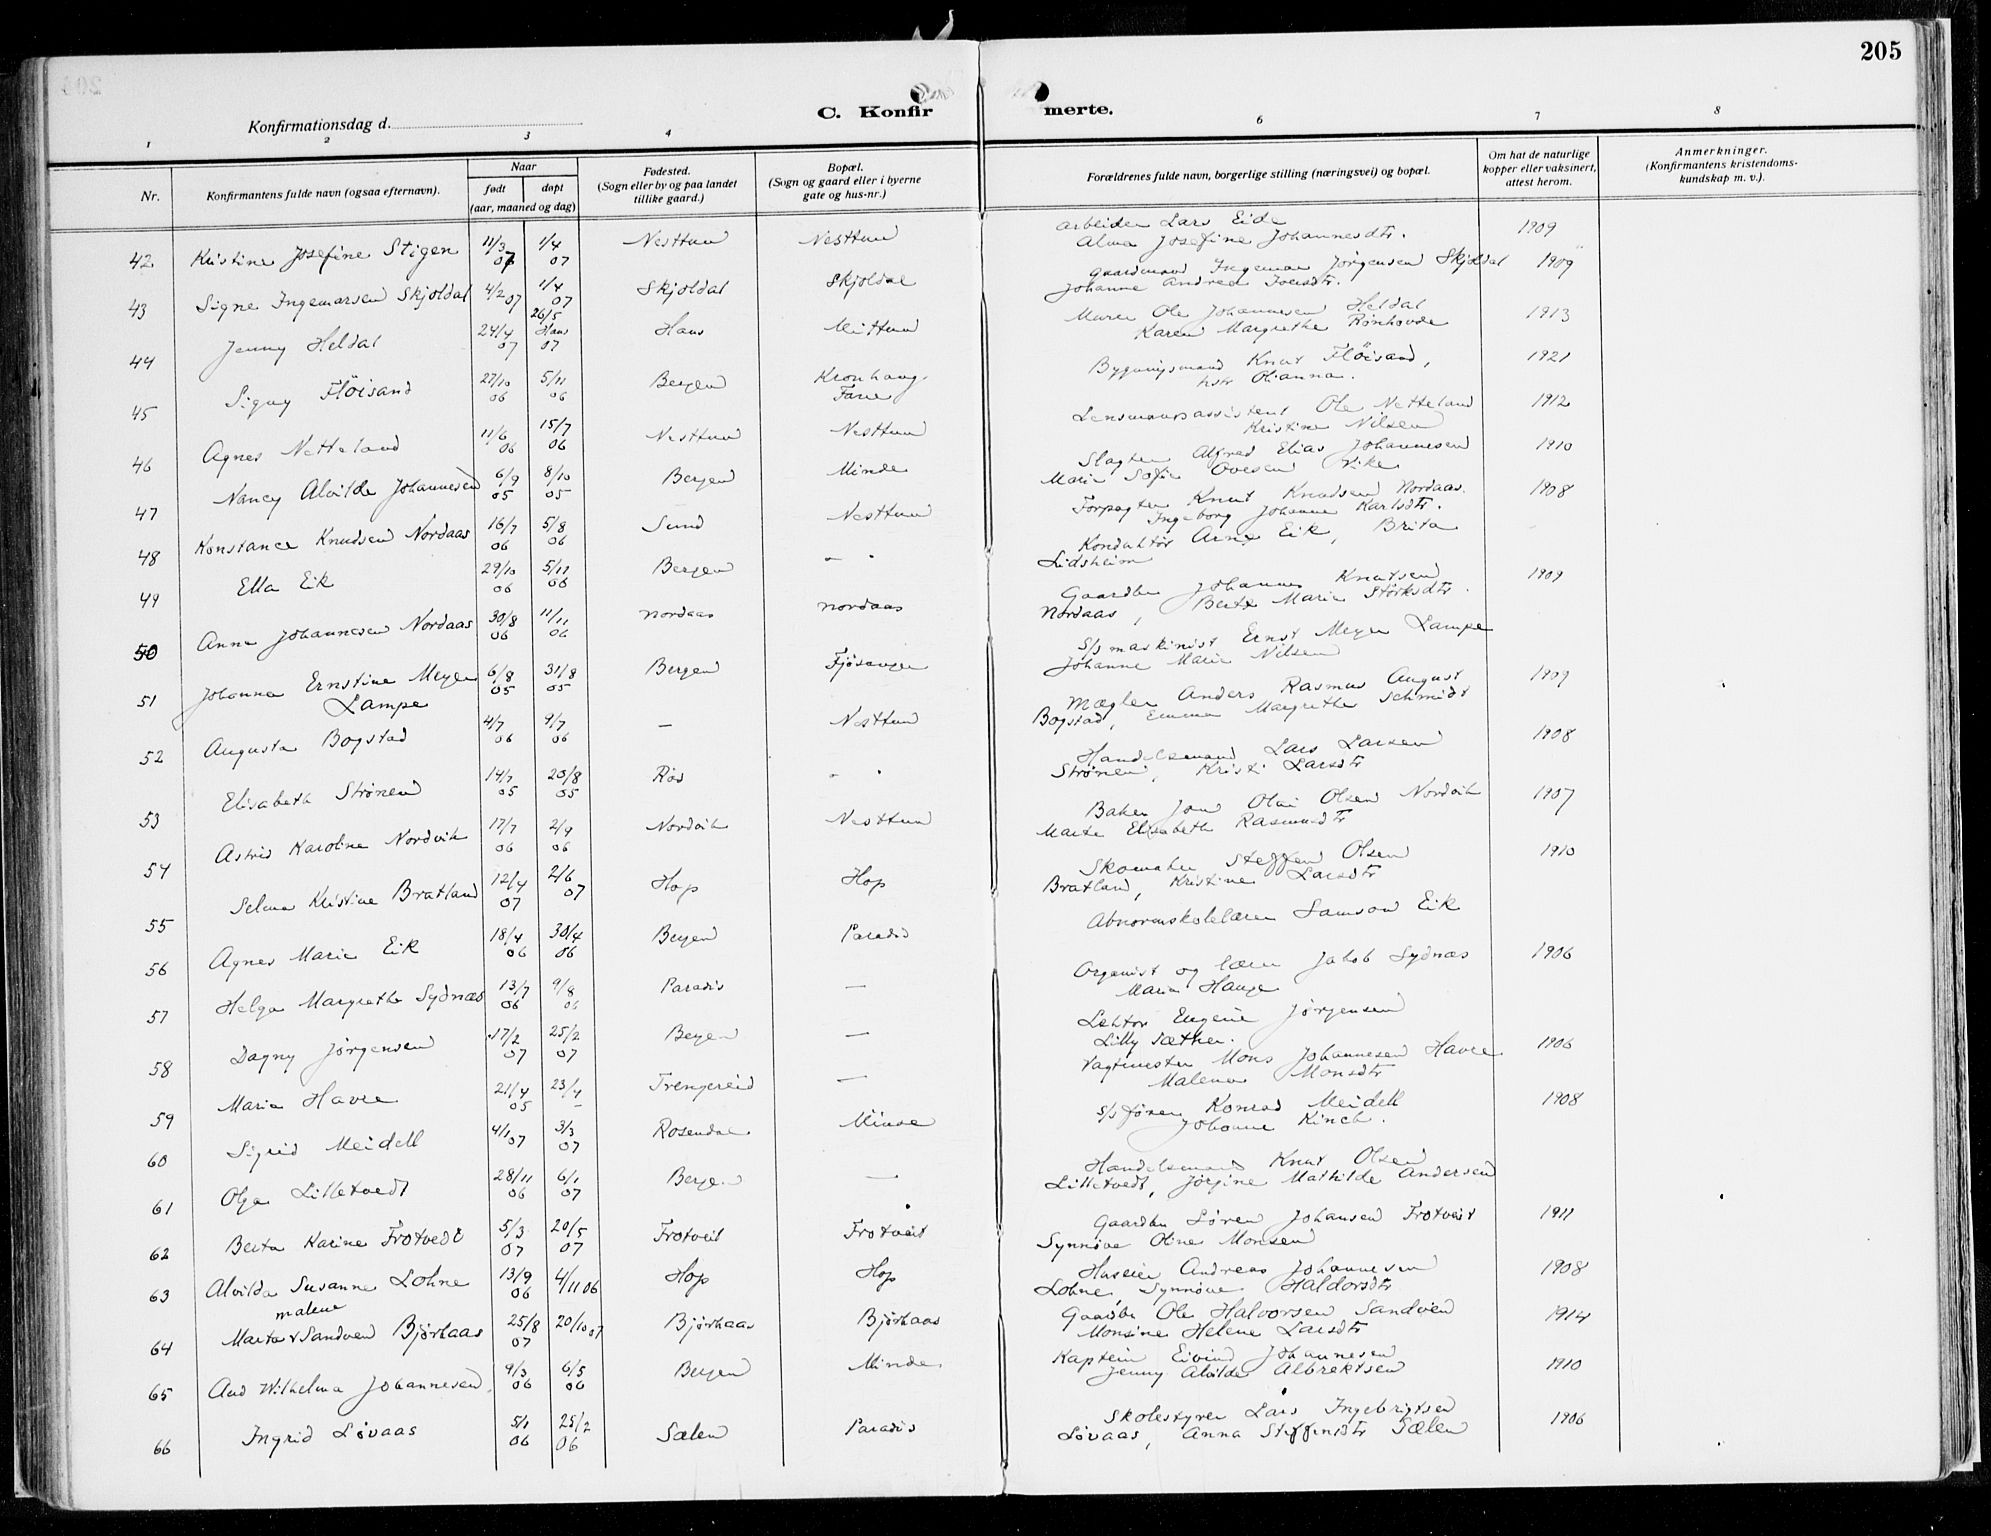 205
C. Konfirmerte.
Konfirmationsdag d.
1 2 3 4 6 7 8
Nr. Konfirmantens fulde navn (ogsaa efternavn). Naar født døpt (aar, maaned og dag) Fødested. (Sogn eller by og paa landet tillike gaard.) Bopæl. (Sogn og gaard eller i byerne gate og hus-nr.) Forældrenes fulde navn, borgerlige stilling (næringsvei) og bopæl. Om hat de naturlige kopper eller vaksinert, attest herom. Anmerkninger. (Konfirmantens kristendoms-kundskap m. v.).
42 Kristine Josefine Stigen 11/3 07 1/4 07 Nesttun Nesttun arbeider Lars Eide Alma Josefine Johannesdtr. 1909
43 Signe Ingemarsen Skjoldal 4/2 07 1/4 07 Skjoldal Skjoldal gaardmand Ingemar Jörgensen Skjoldal Johanne Andrea 1909
44 Jenny Heldal 24/4 07 26/5 Haus 07 Haus Nesttun Murer Ole Johannesen Heldal Karen Margrethe Rönhovde 1913
45 Signy Flöisand 27/10 06 5/11 06 Bergen Kronhaug Fane Bygningsmand Knut Flöisand, hstr Olianna. 1921
46 Agnes Netteland 11/6 06 15/7 06 Nesttun Nesttun Lensmandsassistent Ole Netteland Kristine Nilsen 1912
47 Nancy Alvilde Johannesen 6/9 05 8/10 05 Bergen Minde Slagter Alfred Elias Johannesen Marie Sofie Ovesen Vike 1910
48 Konstance Knudsen Nordaas 16/7 06 5/8 06 Sund Nesttun Forpagter Knut Knudsen Nordaas. Ingeborg Johanne Karlsdtr. 1908
49 Ella Eik 29/10 06 5/11 06 Bergen — " Konduktör Arne Eik, Brita Lidsheim
50 Anna Johannesen Nordaas 30/8 06 11/11 06 Nordaas Nordaas Gaardbr Johannes Knutsen Nordaas, Berte Marie Störksdtr. 1909
51 Johanna Ernstine Meyer Lampe 6/8 05 31/8 05 Bergen Fjösanger S/s maskinist Ernst Meyer Lampe Johanne Marie Nilsen
52 Augusta Bogstad 4/7 06 9/7 06 — Nesttun Mægler Anders Rasmus August Bogstad, Emma Margrethe Schmidt 1909
53 Elisabeth Strönen 14/7 05 20/8 05 Rös — " Handelsmand Lars Larsen Strönen, Kristi Larsdtr 1908
54 Astrid Karoline Nordvik 17/7 06 2/9 06 Nordvik Nesttun Baker Jon Olai Olsen Nordvik Marte Elisabeth Rasmusdtr 1907
55 Selma Kristine Bratland 12/4 07 2/6 07 Hop Hop Skomaker Steffen Olsen Bratland, Kristine Larsdtr 1910
56 Agnes Marie Eik 18/4 06 30/4 06 Bergen Paradis Abnormskolelærer Samson Eik
57 Helga Margrethe Sydnæs 13/7 06 9/8 06 Paradis — Organist og lærer Jakob Sydnæs Maria Hauge 1906
58 Dagny Jörgensen 17/2 07 25/2 07 Bergen — Lektor Eugene Jörgensen Lilly Sæther.
59 Maria Havre 21/4 05 23/4 — Trengereid — Vagtmester Mons Johannesen Havre Malena Monsdtr 1906
60 Sigrid Meidell 4/1 07 3/3 07 Rosendal Minde S/s förer Konrad Meidell Johanne Kinch. 1908
61 Olga Lilletvedt 28/11 06 6/1 07 Bergen — Handelsmand Knut Olsen Lilletvedt, Jörgine Mathilde Andersen
62 Berta Karine Frotvedt 5/3 07 20/5 07 Frotveit Frotveit Gaardbr Sören Johansen Frotveit Synnöve Oline Monsen 1911
63 Alvilda Susanne Lohne 13/9 06 4/11 06 Hop Hop Huseier Andreas Johannesen Lohne, Synnöve Haldorsdtr 1908
64 Marta malene Sandven Bjørkaas 25/8 07 20/10 07 Bjørkaas Bjørkaas Gaardbr Ole Halvorsen Sandven Monsine Helene Larsdtr 1914
65 Aud Wilhelma Johannesen 9/3 06 6/5 06 Bergen Minde Kaptein Eivind Johannesen Jenny Alvilde Albrektsen 1910
66 Ingrid Lövaas 5/1 06 25/2 06 Sælen Paradis Skolestyrer Lars Ingebrigtsen Lövaas, Anna Steffensdtr Sælen 1906